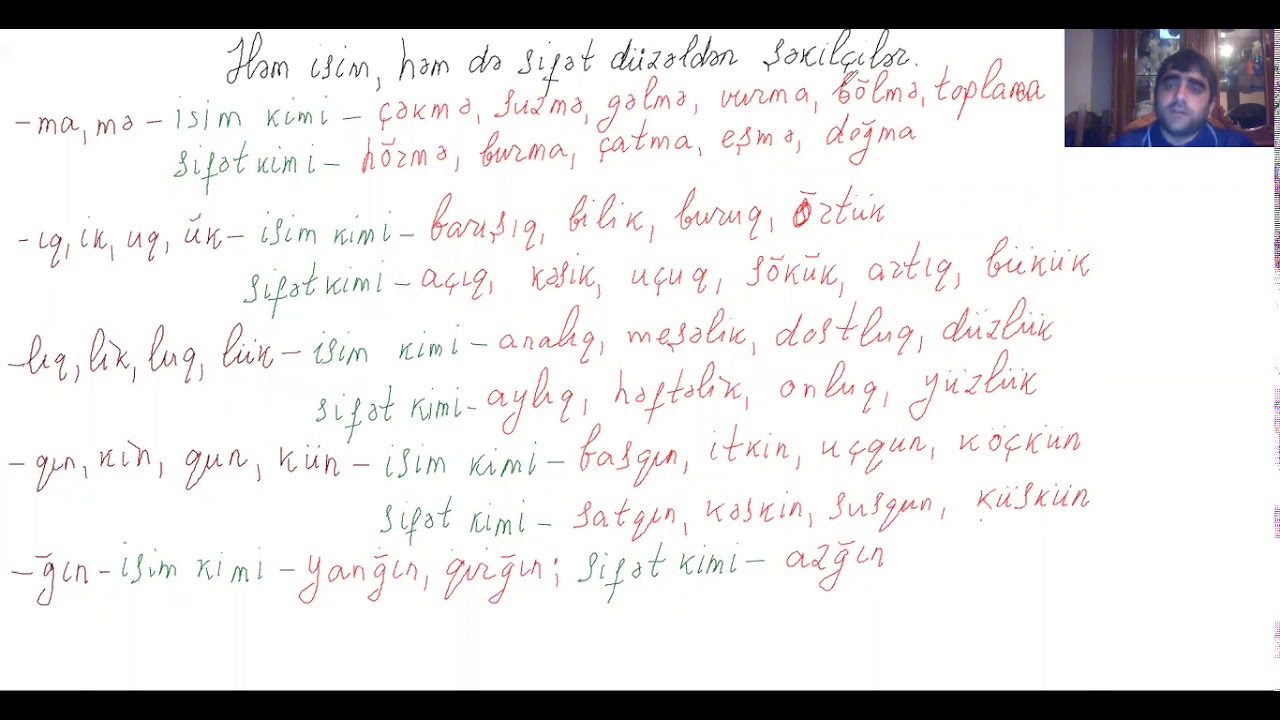 Həm isim, həm də sifət düzəldən şəkilçilər.
-ma, mə - isim kimi - çəkmə, süzmə, gəlmə, vurma, bölmə, toplama
sifət kimi - hörmə, burma, çatma, eşmə, doğma
-ıq, ik, uq, ük - isim kimi - barışıq, bilik, buruq, örtük
sifət kimi - açıq, kəsik, uçuq, sökük, artıq, bükük
-lıq, lik, luq, lük - isim kimi - analıq, meşəlik, dostluq, düzlük
sifət kimi - aylıq, həftəlik, onluq, yüzlük
- qın, kin, qun, kün - isim kimi - basqın, itkin, uçqun, köçkün
sifət kimi - satqın, kəskin, susqun, küskün
- ğın - isim kimi - yanğın, qırğın; sifət kimi - azğın